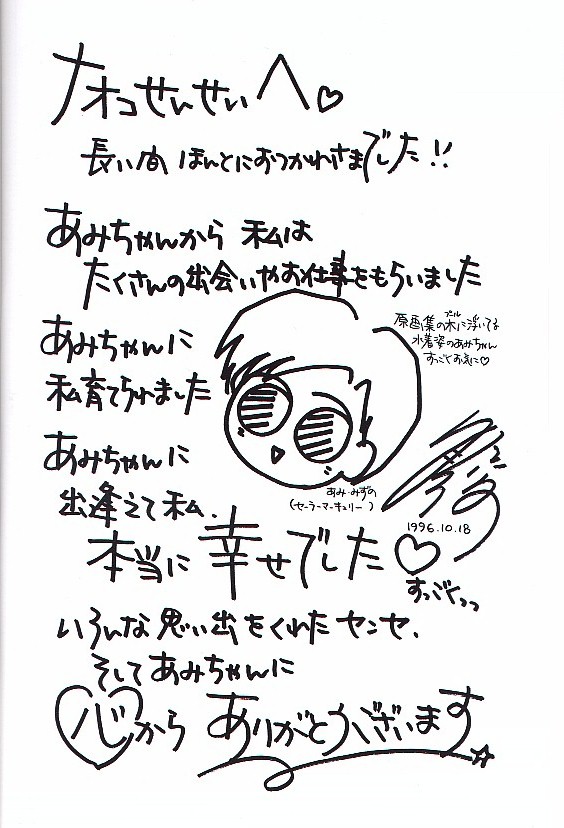 ナオコせんせいへ♡
長い間 ほんとにおつかれさまでした!!
あみちゃんから 私は
たくさんの出会いやお仕事をもらいました
あみちゃんに
私育てられました
あみちゃんに
出逢えて私.
本当に幸せでした♡
すっごくっっ
いろんな思い出をくれたセンセ.
そしてあみちゃんに
心からありがとうございます☆
原画集の水に浮いてる
プール
水着姿のあみちゃん
すっごくお気に♡
あみ・みずの
(セーラーマーキュリー)
1996.10.18